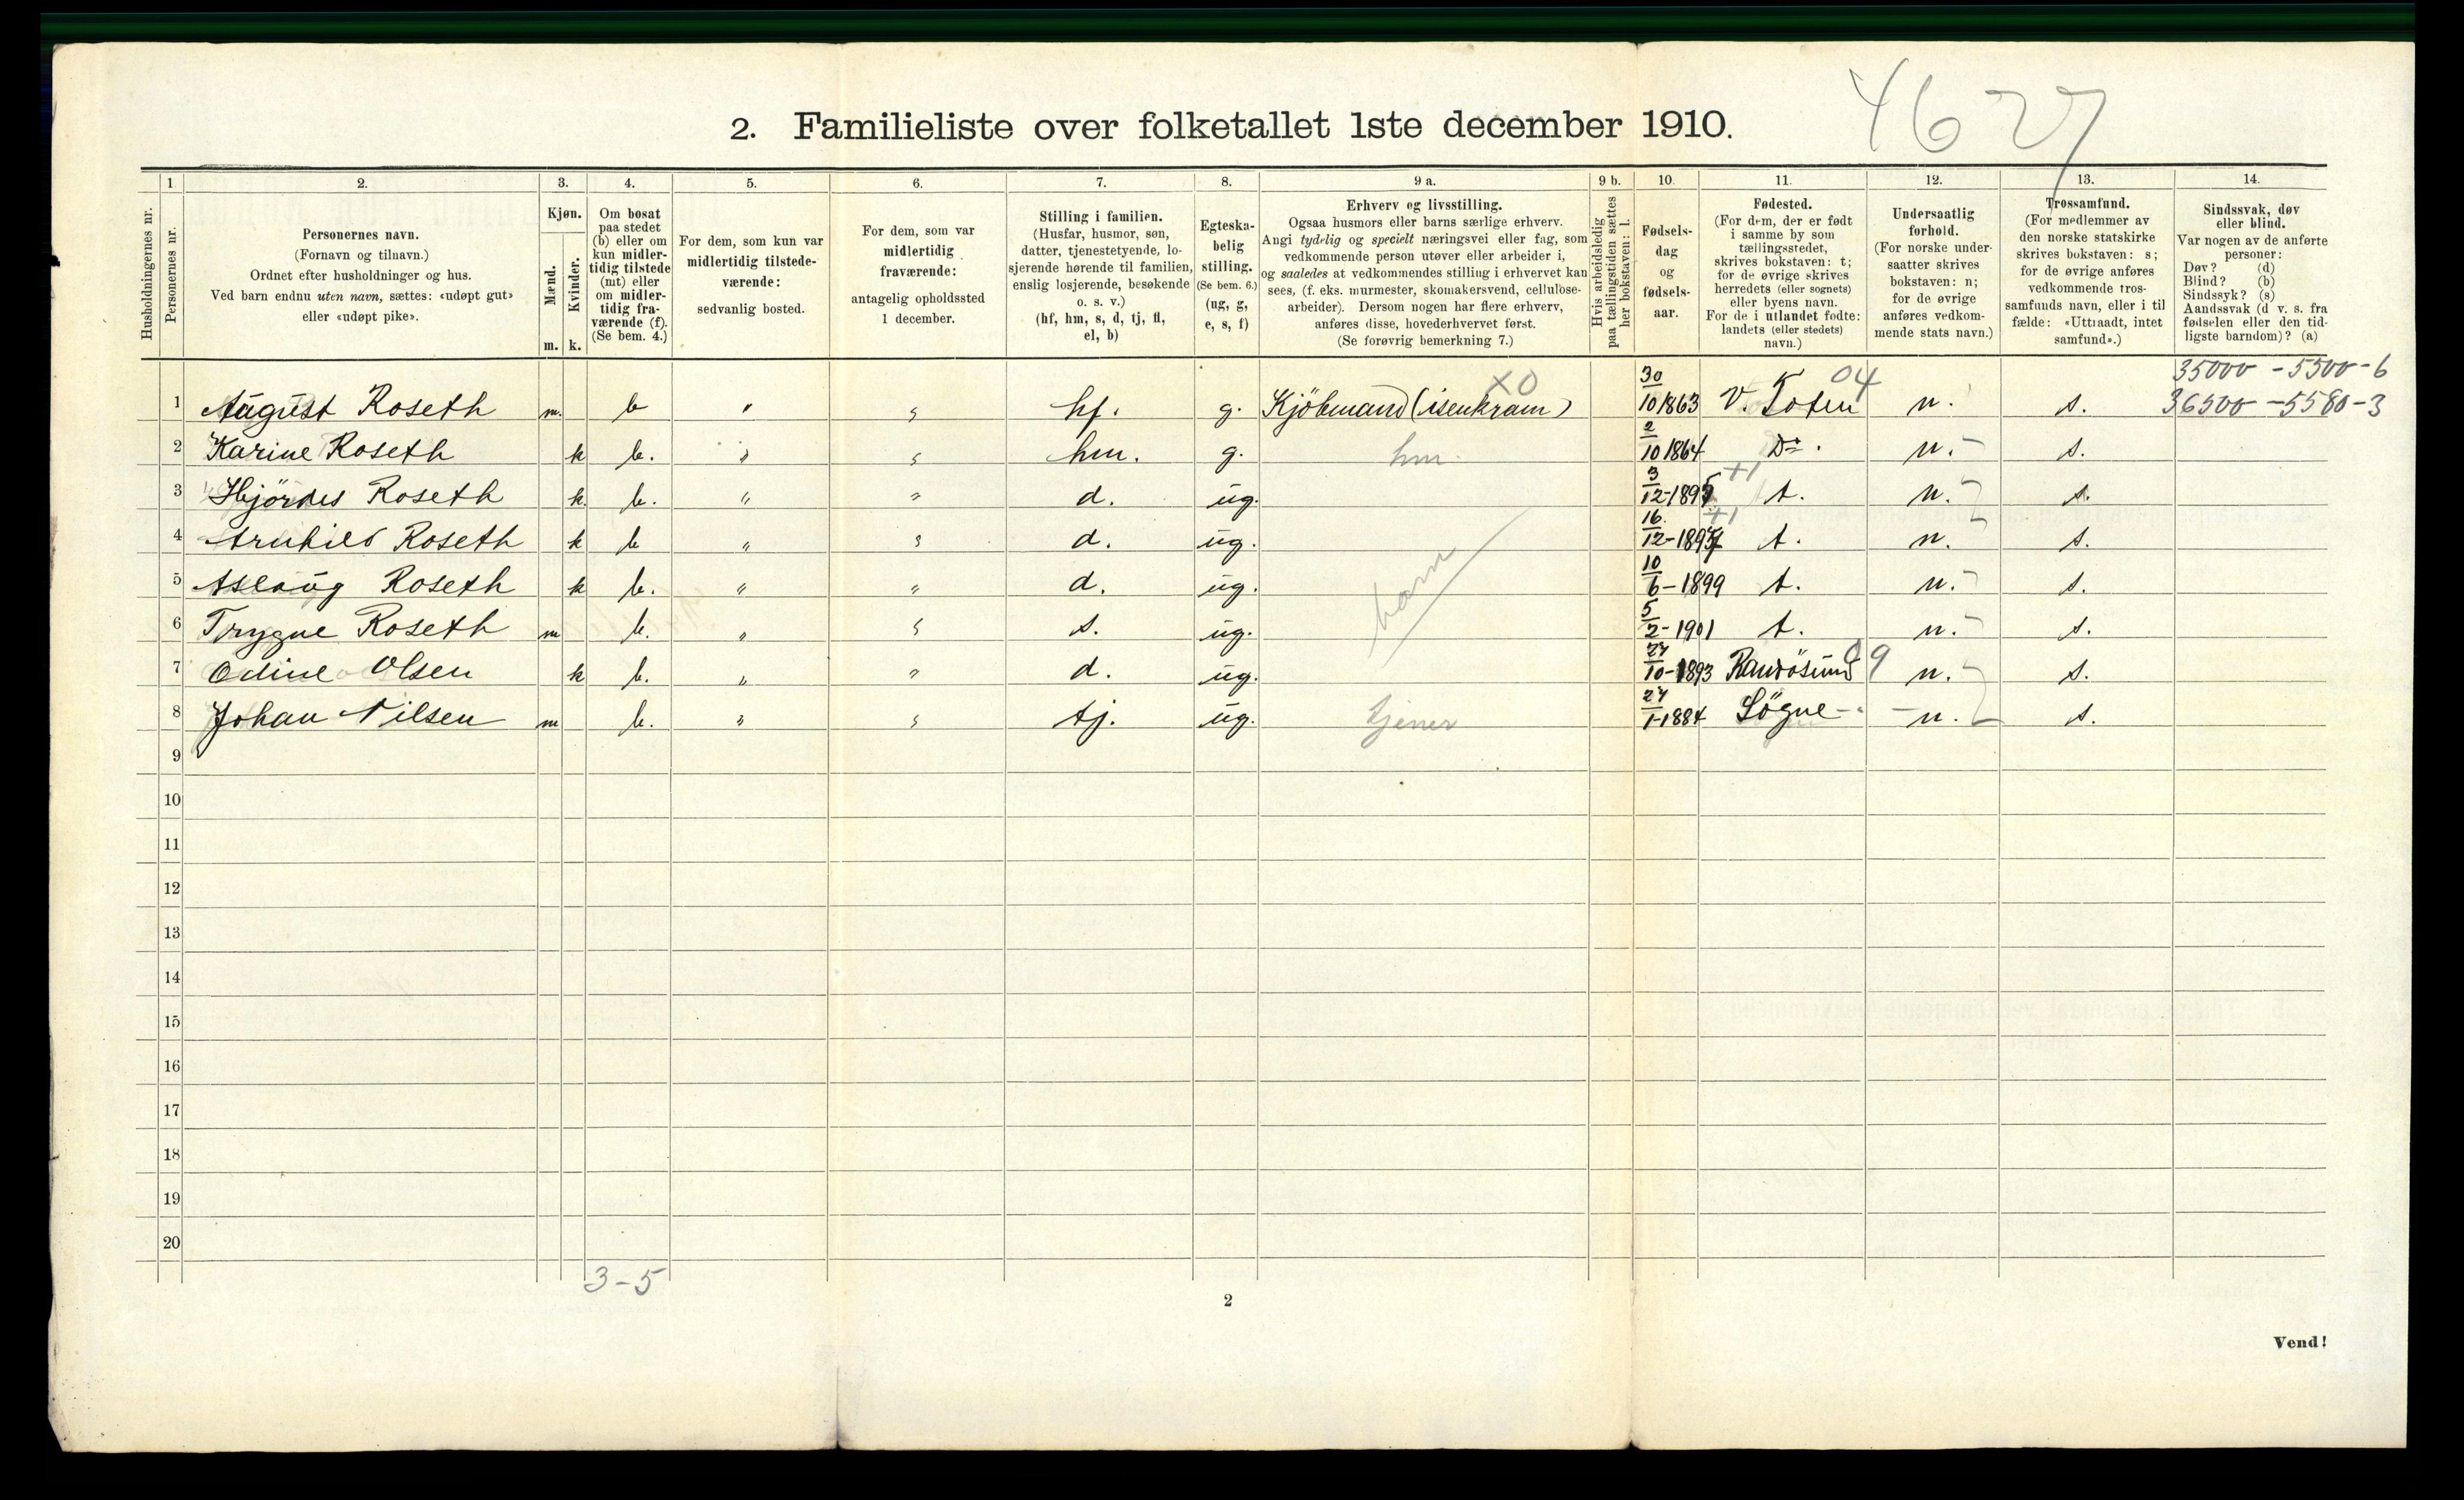 4627
2. Familieliste over folketallet 1ste december 1910.
Husholdningernes nr.
1
Personernes nr.
2.
Personernes navn.
(Fornavn og tilnavn.)
Ordnet efter husholdninger og hus.
Ved barn endnu uten navn, sættes: «udøpt gut»
eller «udøpt pike».
3.
Kjøn.
Mænd.
Kvinder.
m. k.
4.
Om bosat
paa stedet
(b) eller om
kun midler-
tidig tilstede
(mt) eller
om midler-
tidig fra-
værende (f).
(Se bem. 4.)
5.
For dem, som kun var
midlertidig tilstede-
værende:
sedvanlig bosted.
6.
For dem, som var
midlertidig
fraværende:
antagelig opholdssted
1 december.
7.
Stilling i familien.
(Husfar, husmor, søn,
datter, tjenestetyende, lo-
sjerende hørende til familien,
enslig losjerende, besøkende
o. s. v.)
(hf, hm, s, d, tj, fl,
el, b)
8.
Egteska-
belig
stilling.
(Se bem. 6.)
(ug, g,
e, s, f)
9 a.
Erhverv og livsstilling.
Ogsaa husmors eller barns særlige erhverv.
Angi tydelig og specielt næringsvei eller fag, som
vedkommende person utøver eller arbeider i,
og saaledes at vedkommendes stilling i erhvervet kan
sees, (f. eks. murmester, skomakersvend, cellulose-
arbeider). Dersom nogen har flere erhverv,
anføres disse, hovederhvervet først.
(Se forøvrig bemerkning 7.)
9 b.
Hvis arbeidsledig
paa tællingstiden sættes
her bokstaven: l.
10.
Fødsels-
dag
og
fødsels-
aar.
11.
Fødested.
(For dem, der er født
i samme by som
tællingsstedet,
skrives bokstaven: t;
for de øvrige skrives
herredets (eller sognets)
eller byens navn.
For de i utlandet fødte:
landets (eller stedets)
navn.)
12.
Undersaatlig
forhold.
(For norske under-
saatter skrives
bokstaven: n;
for de øvrige
anføres vedkom-
mende stats navn.)
13.
Trossamfund.
(For medlemmer av
den norske statskirke
skrives bokstaven: s;
for de øvrige anføres
vedkommende tros-
samfunds navn, eller i til
fælde: «Uttraadt, intet
samfund».)
14.
Sindssvak, døv
eller blind.
Var nogen av de anførte
personer:
Døv? (d)
Blind? (b)
Sindssyk? (s)
Aandssvak (d v. s. fra
fødselen eller den tid-
ligste barndom)? (a)
X0 04 35000 - 5500 - 6
1 August Roseth m. b " " hf. g. Kjöbmand (isenkram) 30/10 1863 V. Toten n. s. 36500 - 5580 - 3
2 Karine Roseth k b. " " hm. g. hm. 2/10 1864 Do. n. s.
+1
3 Hjördis Roseth k. b. " " d. ug. 3/12-1895 t. n. s.
+1
4 Arnhild Roseth k b " " d. ug. 16/12-1897 t. n. s.
5 Aslaug Roseth k b. " " d. ug. barn 10/6-1899 t. n. s.
6 Trygve Roseth m b. " " s. ug. 5/2-1901 t. n. s.
09
7 Odine Olsen k b. " " d. ug. 24/10-1893 Randösund n. s.
8 Johan Nilsen m b. " " tj. ug. tjener 27/1-1884 Sögne n. s.
9
10
11
12
13
14
15
16
17
18
19
20
3-5
2
Vend!